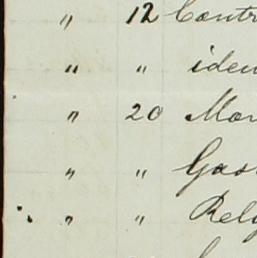 " 12 Contr
" " iden
" 20 Mar
" " Gas
" " Rely